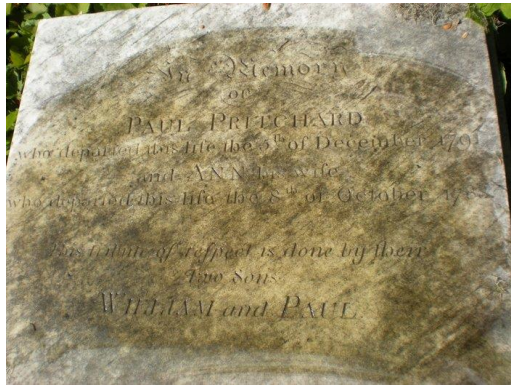 In Memory
of
PAUL PRITCHARD
who departed this life the 5th of December 1791
and ANN his wife
who departed this life the 8th of October
This tribute of respect is done by their
Two Sons.
WILLIAM and PAUL